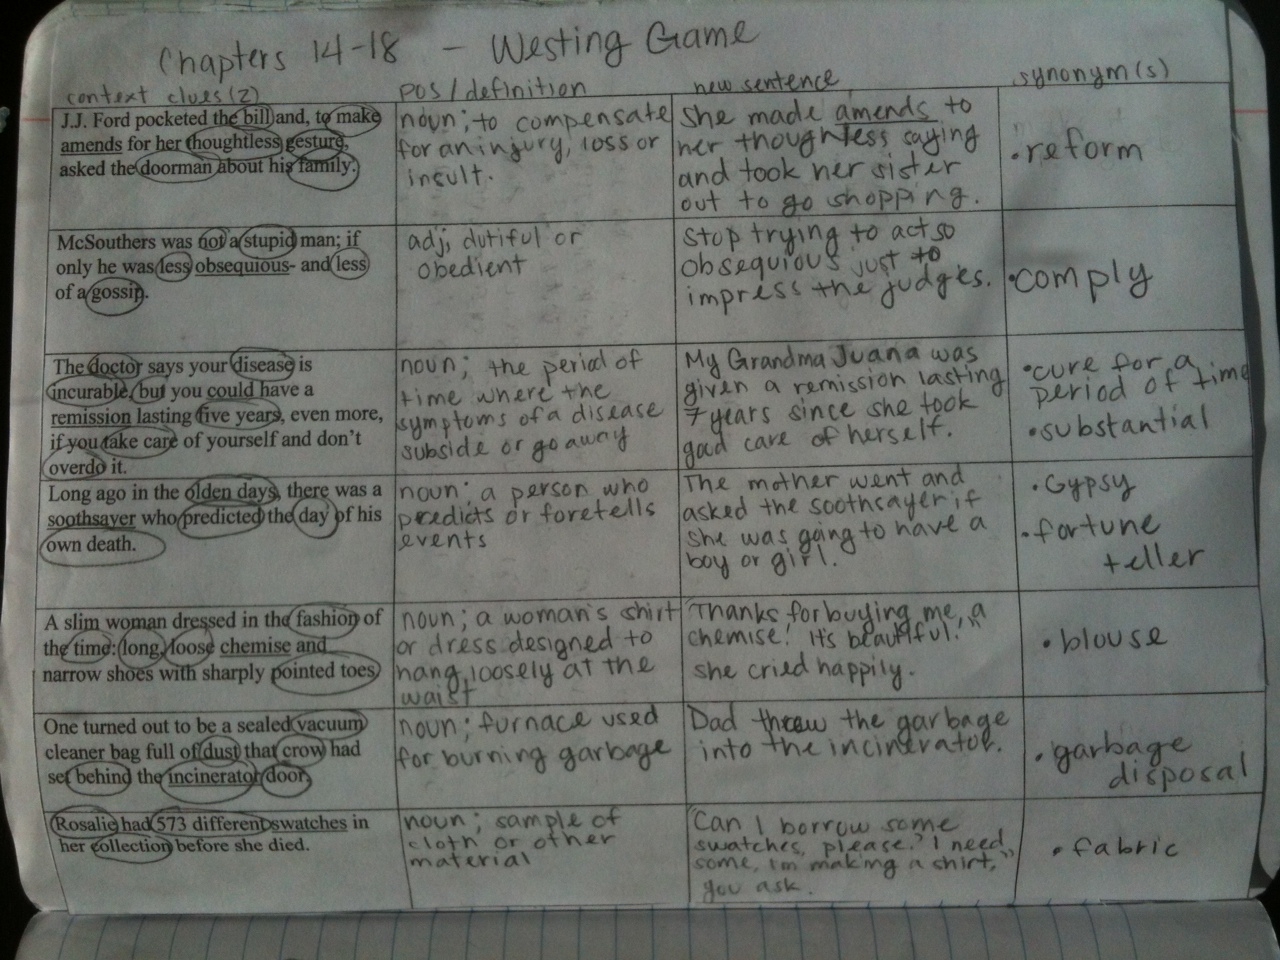 Chapters 14-18 - Westing Game
context clues(2) POS/definition new sentence synonym(s)
J.J. Ford pocketed the bill and, to make
amends for her thoughtless gesture,
asked the doorman about his family.
noun; to compensate
for an injury, loss or
insult.
She made amends to
her thoughtless saying
and took her sister
out to go shopping.
• reform
McSouthers was not a stupid man; if
only he was less obsequious- and less
of a gossip.
adj; dutiful or
obedient
Stop trying to act so
obsequious just to
impress the judges.
• comply
The doctor says your disease is
incurable, but you could have a
remission lasting five years, even more,
if you take care of yourself and don't
overdo it.
noun; the period of
time where the
symptoms of a disease
subside or go away
My Grandma Juana was
given a remission lasting
7 years since she took
good care of herself.
• cure for a
period of time
• substantial
Long ago in the olden days, there was a
soothsayer who predicted the day of his
own death.
noun; a person who
predicts or foretells
events
The mother went and
asked the soothsayer if
she was going to have a
boy or girl.
• Gypsy
• fortune
teller
A slim woman dressed in the fashion of
the time: long, loose chemise and
narrow shoes with sharply pointed toes.
noun; a woman's shirt
or dress designed to
hang loosely at the
waist
"Thanks for buying me, a
chemise! It's beautiful."
she cried happily.
• blouse
One turned out to be a sealed vacuum
cleaner bag full of dust that crow had
set behind the incinerator door.
noun; furnace used
for burning garbage
Dad threw the garbage
into the incinerator.
• garbage
disposal
Rosalie had 573 different swatches in
her collection before she died.
noun; sample of
cloth or other
material
"Can I borrow some
swatches, please? I need
some, I'm making a shirt,"
you ask.
• fabric